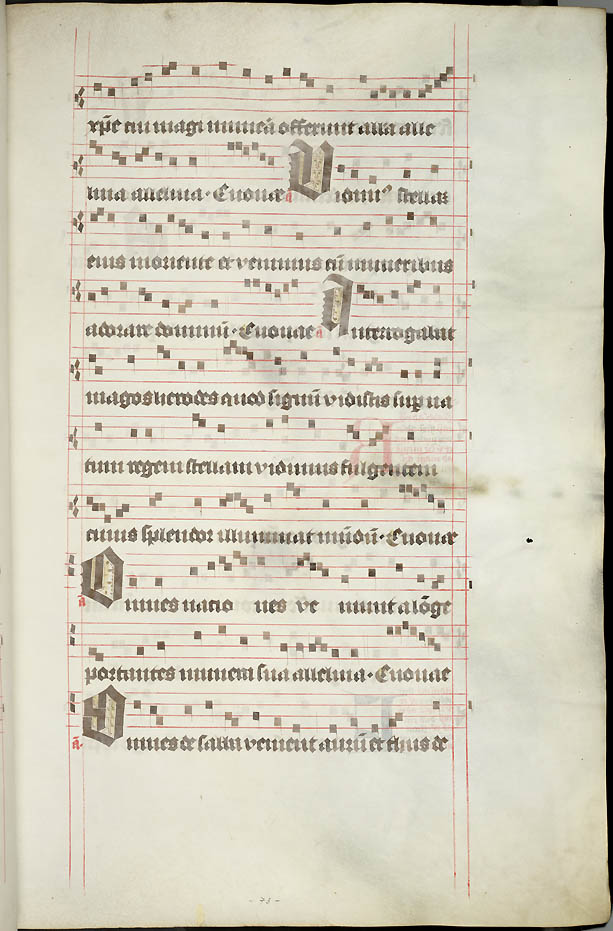 xp̄e cui magi munera offerunt alla alle
luia alleluia · Euouae a Vidimꝰ stellam
eius in oriente et venimus cū muneribus
adorare dominū · Euouae a Interrogabat
magos herodes quod signū vidistis sup na
tum regem stellam vidimus fulgentem
cuius splendor illuminat mūdū · Euouae
a Omnes natio nes ve niunt a lōge
portantes munera sua alleluia · Euouae
ā. Omnes de sabba venient aurū et thus de